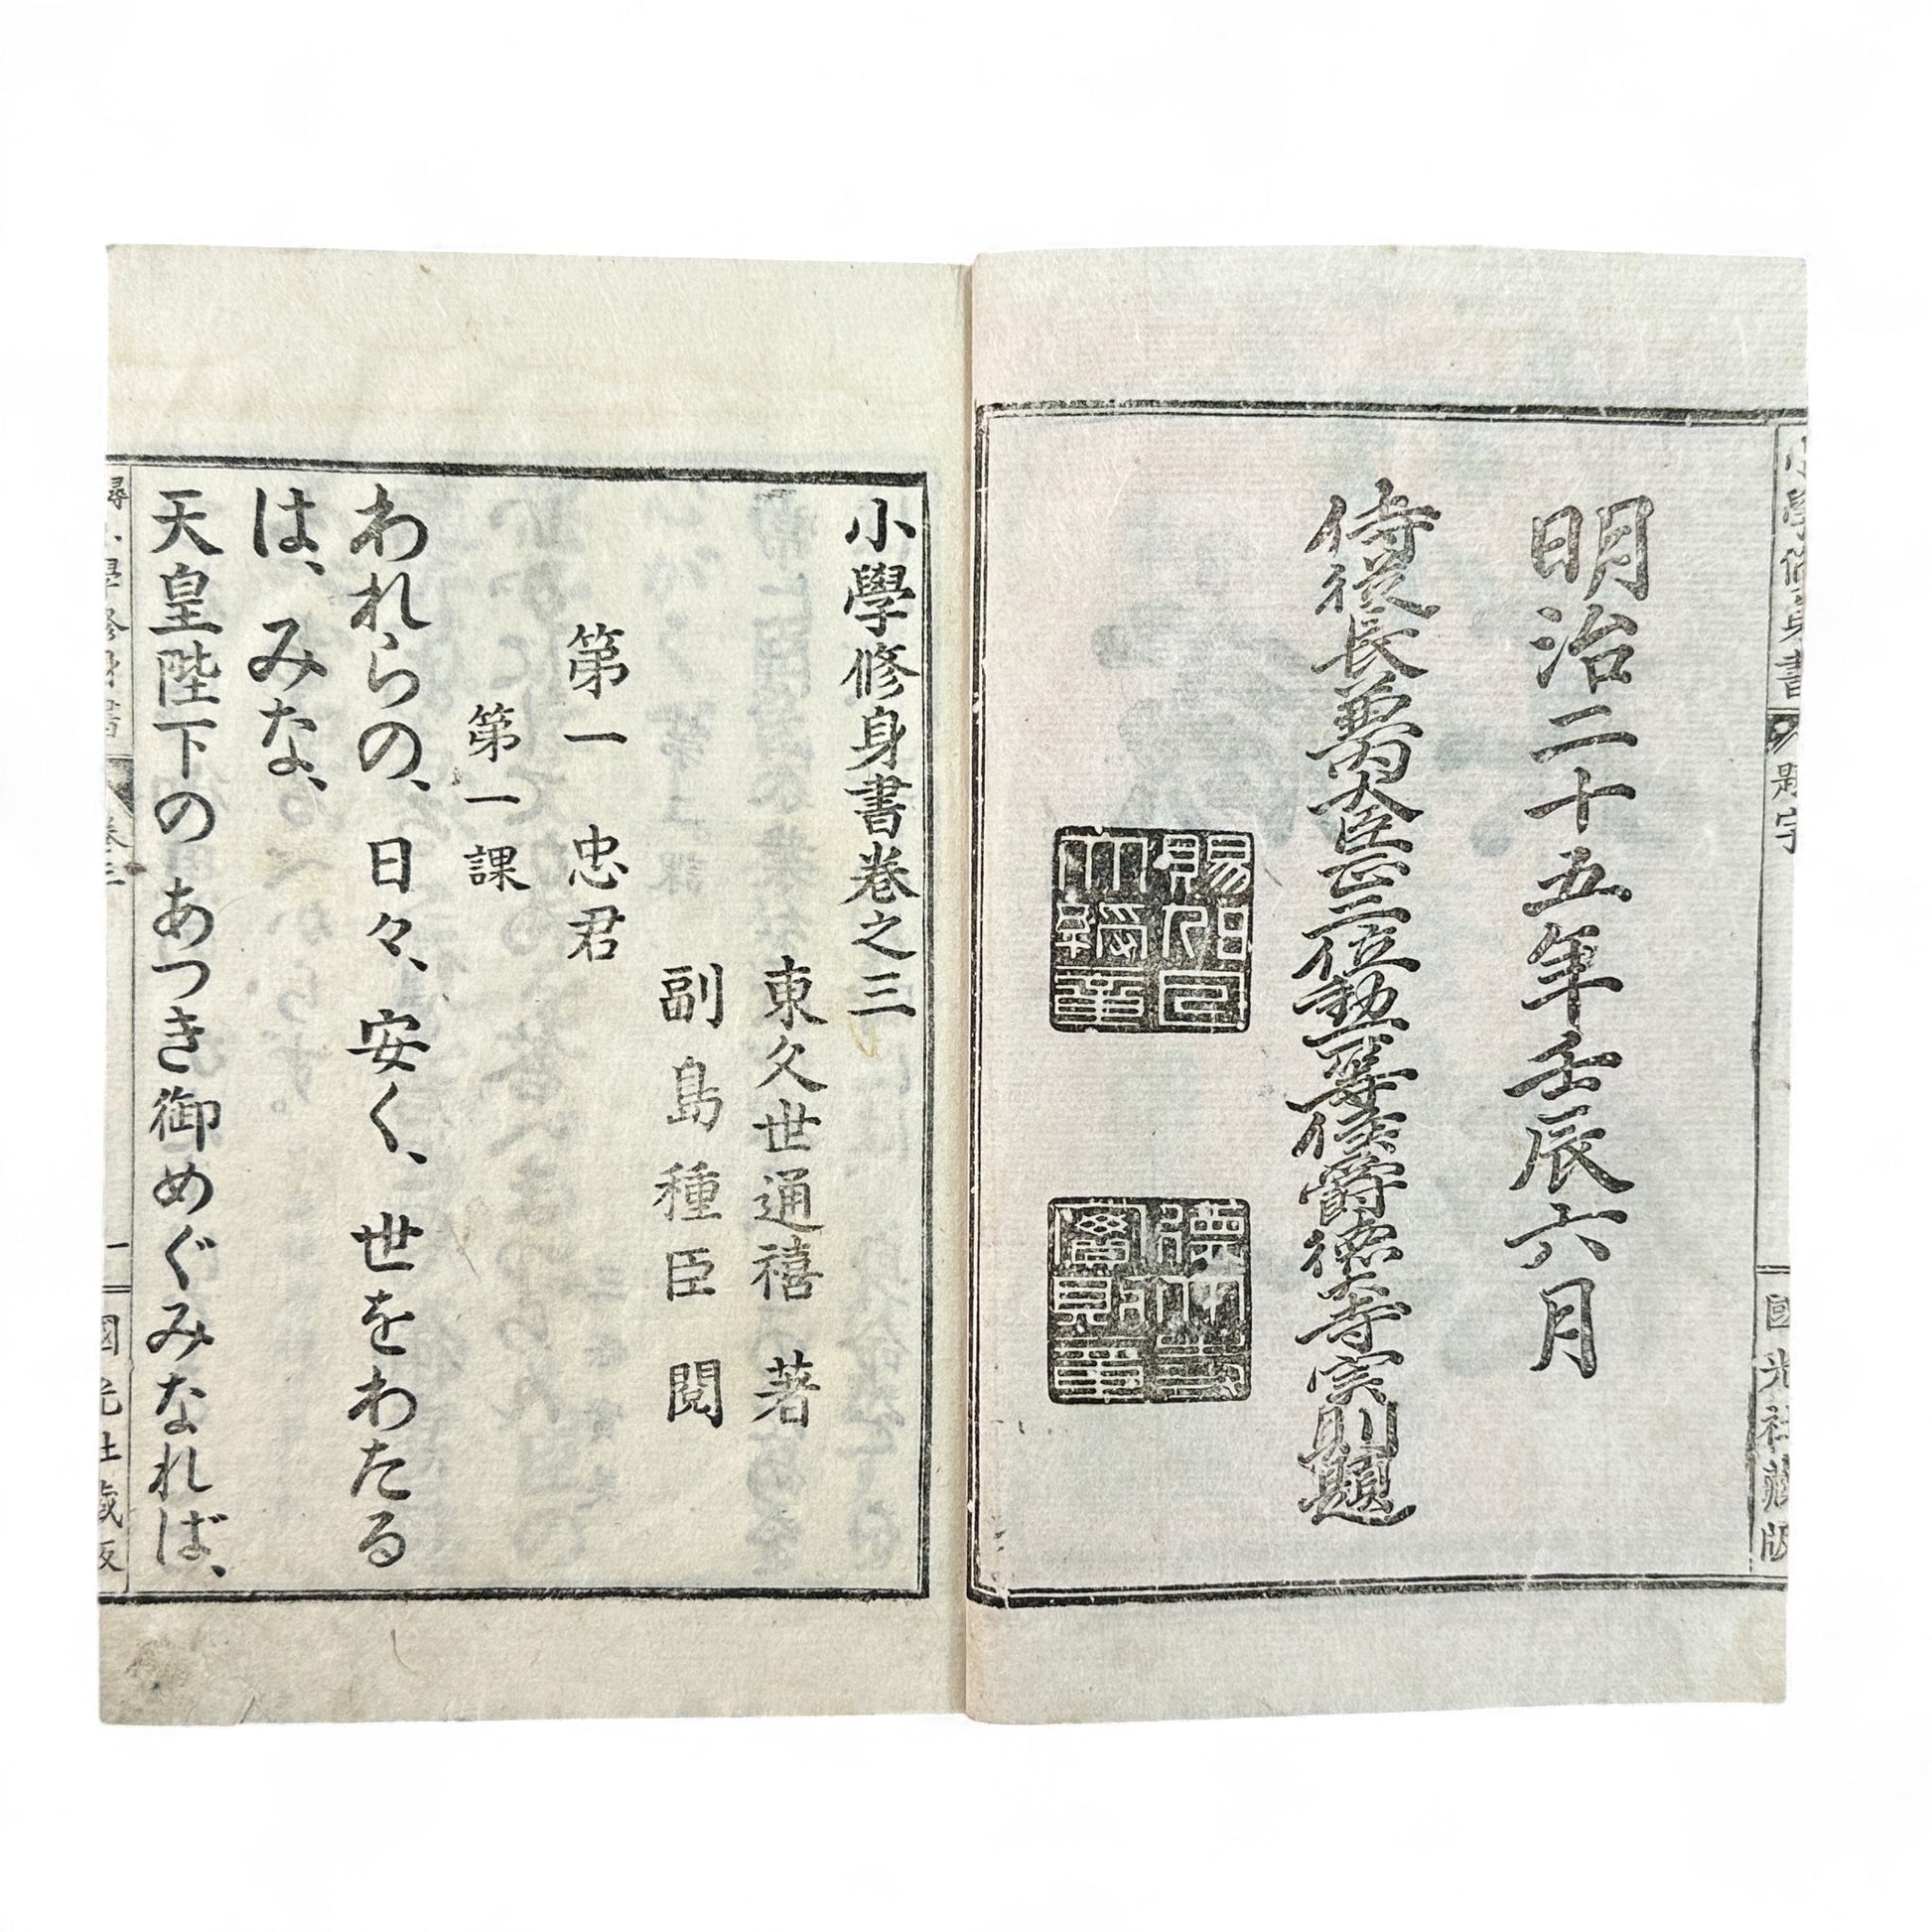 小學修身書
題字
國光社藏版
明治二十五年壬辰六月
侍從長兼内大臣正三位勳一等侯爵德大寺実則題
賜旭日
大綬章
德大寺
實則章
小學修身書卷之三
東久世通禧 著
副島種臣 閱
第一 忠君
第一課
われらの、日々、安く、世をわたる
は、みな、
天皇陛下のあつき御めぐみなれば、
尋小學修身書
卷三
一
國光社藏版